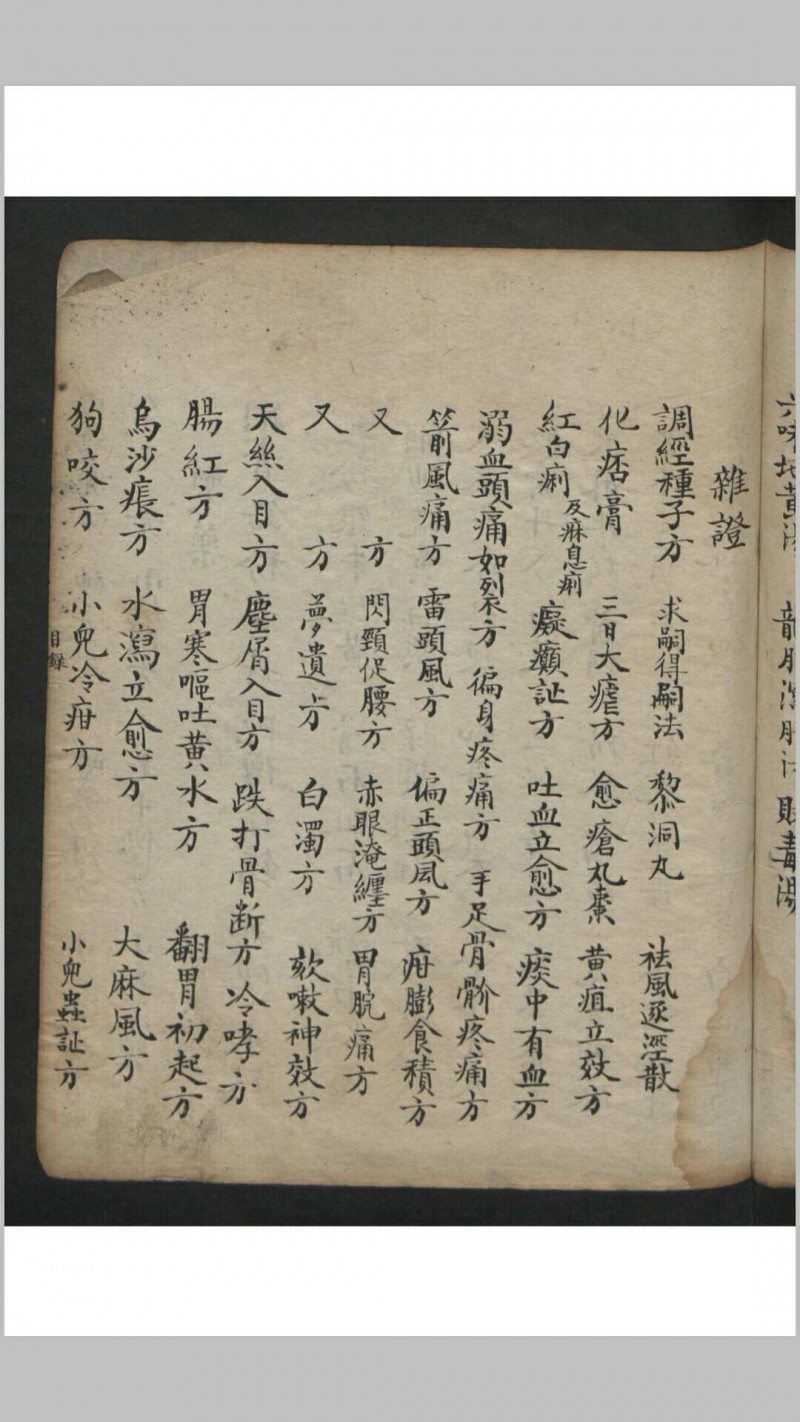 六味地黃湯 龍胆瀉肝法 敗毒湯
雜證
調經種子方 求嗣得嗣法 黎洞丸 祛風逐溼散
化痞膏 三日大瘧方 愈瘡丸藥 黃疸立效方
紅白痢及痳息痢 癡癲証方 吐血立愈方 痰中有血方
溺血頭痛如裂方 徧身疼痛方 手足骨骱疼痛方
箭風痛方 雷頭風方 偏正頭風方 疳膨食積方
又方 閃頸促腰方 赤眼淹纏方 胃脘痛方
又方 夢遺方 白濁方 欬嗽神效方
天絲入目方 塵屑入目方 跌打骨断方 冷哮方
腸紅方 胃寒嘔吐黃水方 翻胃初起方
烏沙痮方 水瀉立愈方 大麻風方
狗咬方 小兒冷疳方 小兒蟲証方
目錄